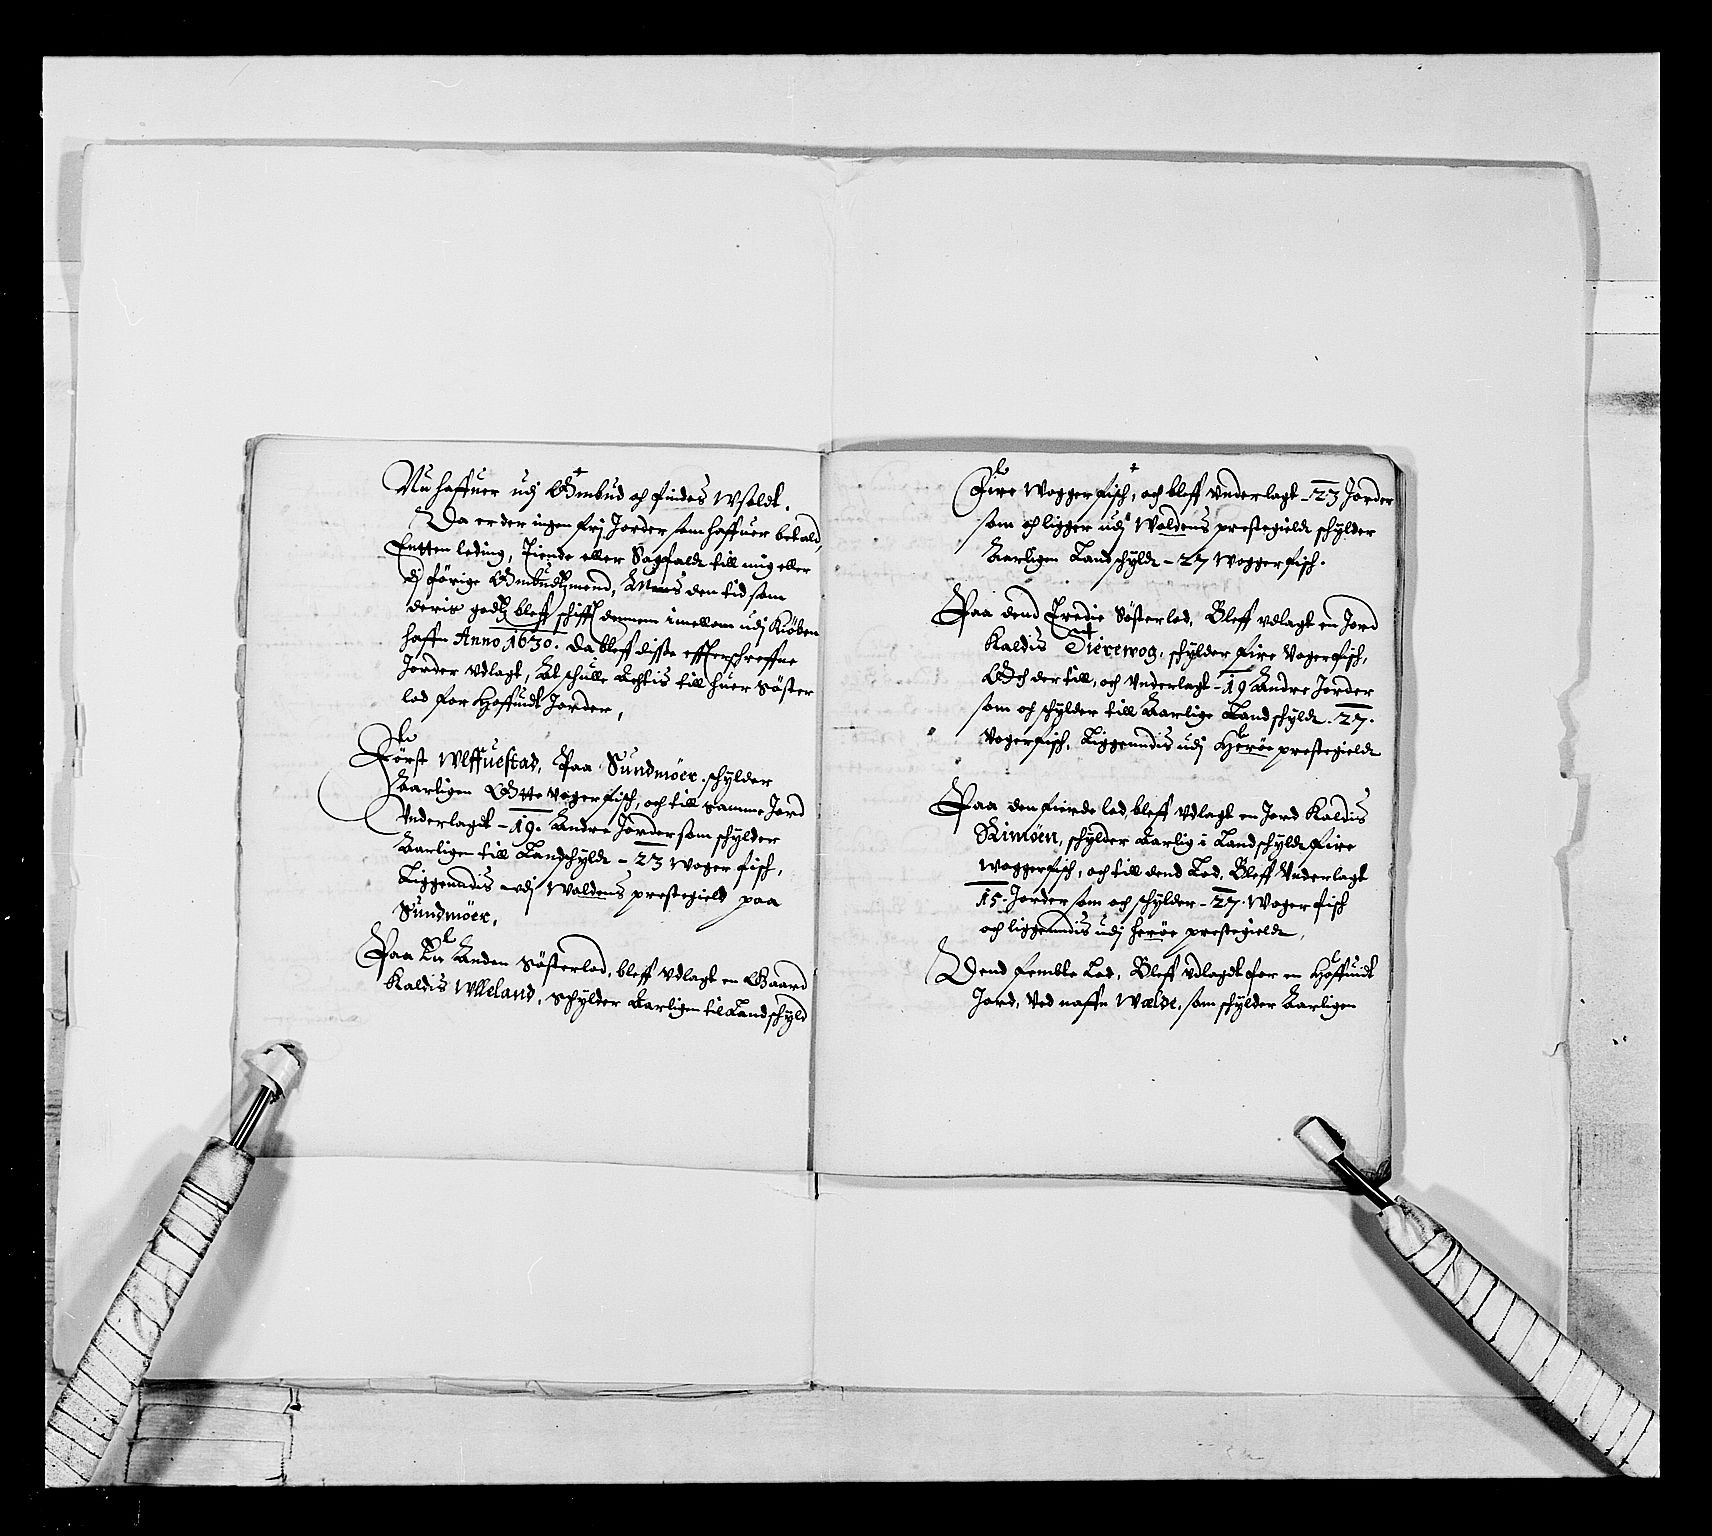 Nu haffuer udj Ombud och findes Wsoldt.
Da er der ingen frj Jorder som haffuer betald,
Entten leding, Tiende eller Sagfald till mig eller
dj förige Ombudtzmend, Mens den tid som
deris godtz bleff schifft dennem imellom udj Kiöben
haffn Anno 1630. Da bleff disse effterschreffne
Jorder vdlagt, At schulle Achtis till huer Söster
lod for Hoffuidt Jorder,
Först Wlffuestad, Paa Sundmöer. schylder
Aarligen Otte voger fisch, och till samme Jord
Vnderlagdt - 19. Andre Jorder som schylder
Aarligen till Landschyldt - 23 Woger fisch,
Liggenndis udj Woldens prestegield paa
Sundmöer,
Paa den Anden Sösterlod, bleff vdlagt en Gaard
Kaldis Wlleland, schylder Aarligen til Landschyld
Fire Wogger fisch, och bleff Vnderlagt - 23 Jorder
som och ligger udj Woldens prestegieldt schylder
Aarligen Landschyldt - 27 Wogger fisch.
Paa dend Tredie Sösterlod, Bleff vdlagt en Jord
Kaldis Tierewog, schylder fire Voger fisch,
Och der till, och Vnderlagt - 19 Andre Jorder
som och schylder till Aarlige Landschyldt. 27.
Voger fisch, Liggenndis udj Heröe prestegieldt
Paa den fierde lod, bleff Vdlagt en Jord Kaldis
Rimöen, schylder Aarlig i Landschyldt fire
Wogger fisch, och till dend Lod, Bleff Vnderlagt
15. Jorder som och schylder - 27. Woger fisch
och liggenndis udj heröe prestegieldt,
Dend fembte Lod, Bleff Vdlagdt for en Hoffuidt
Jord, Ved naffn Wælde, som schylder Aarligen